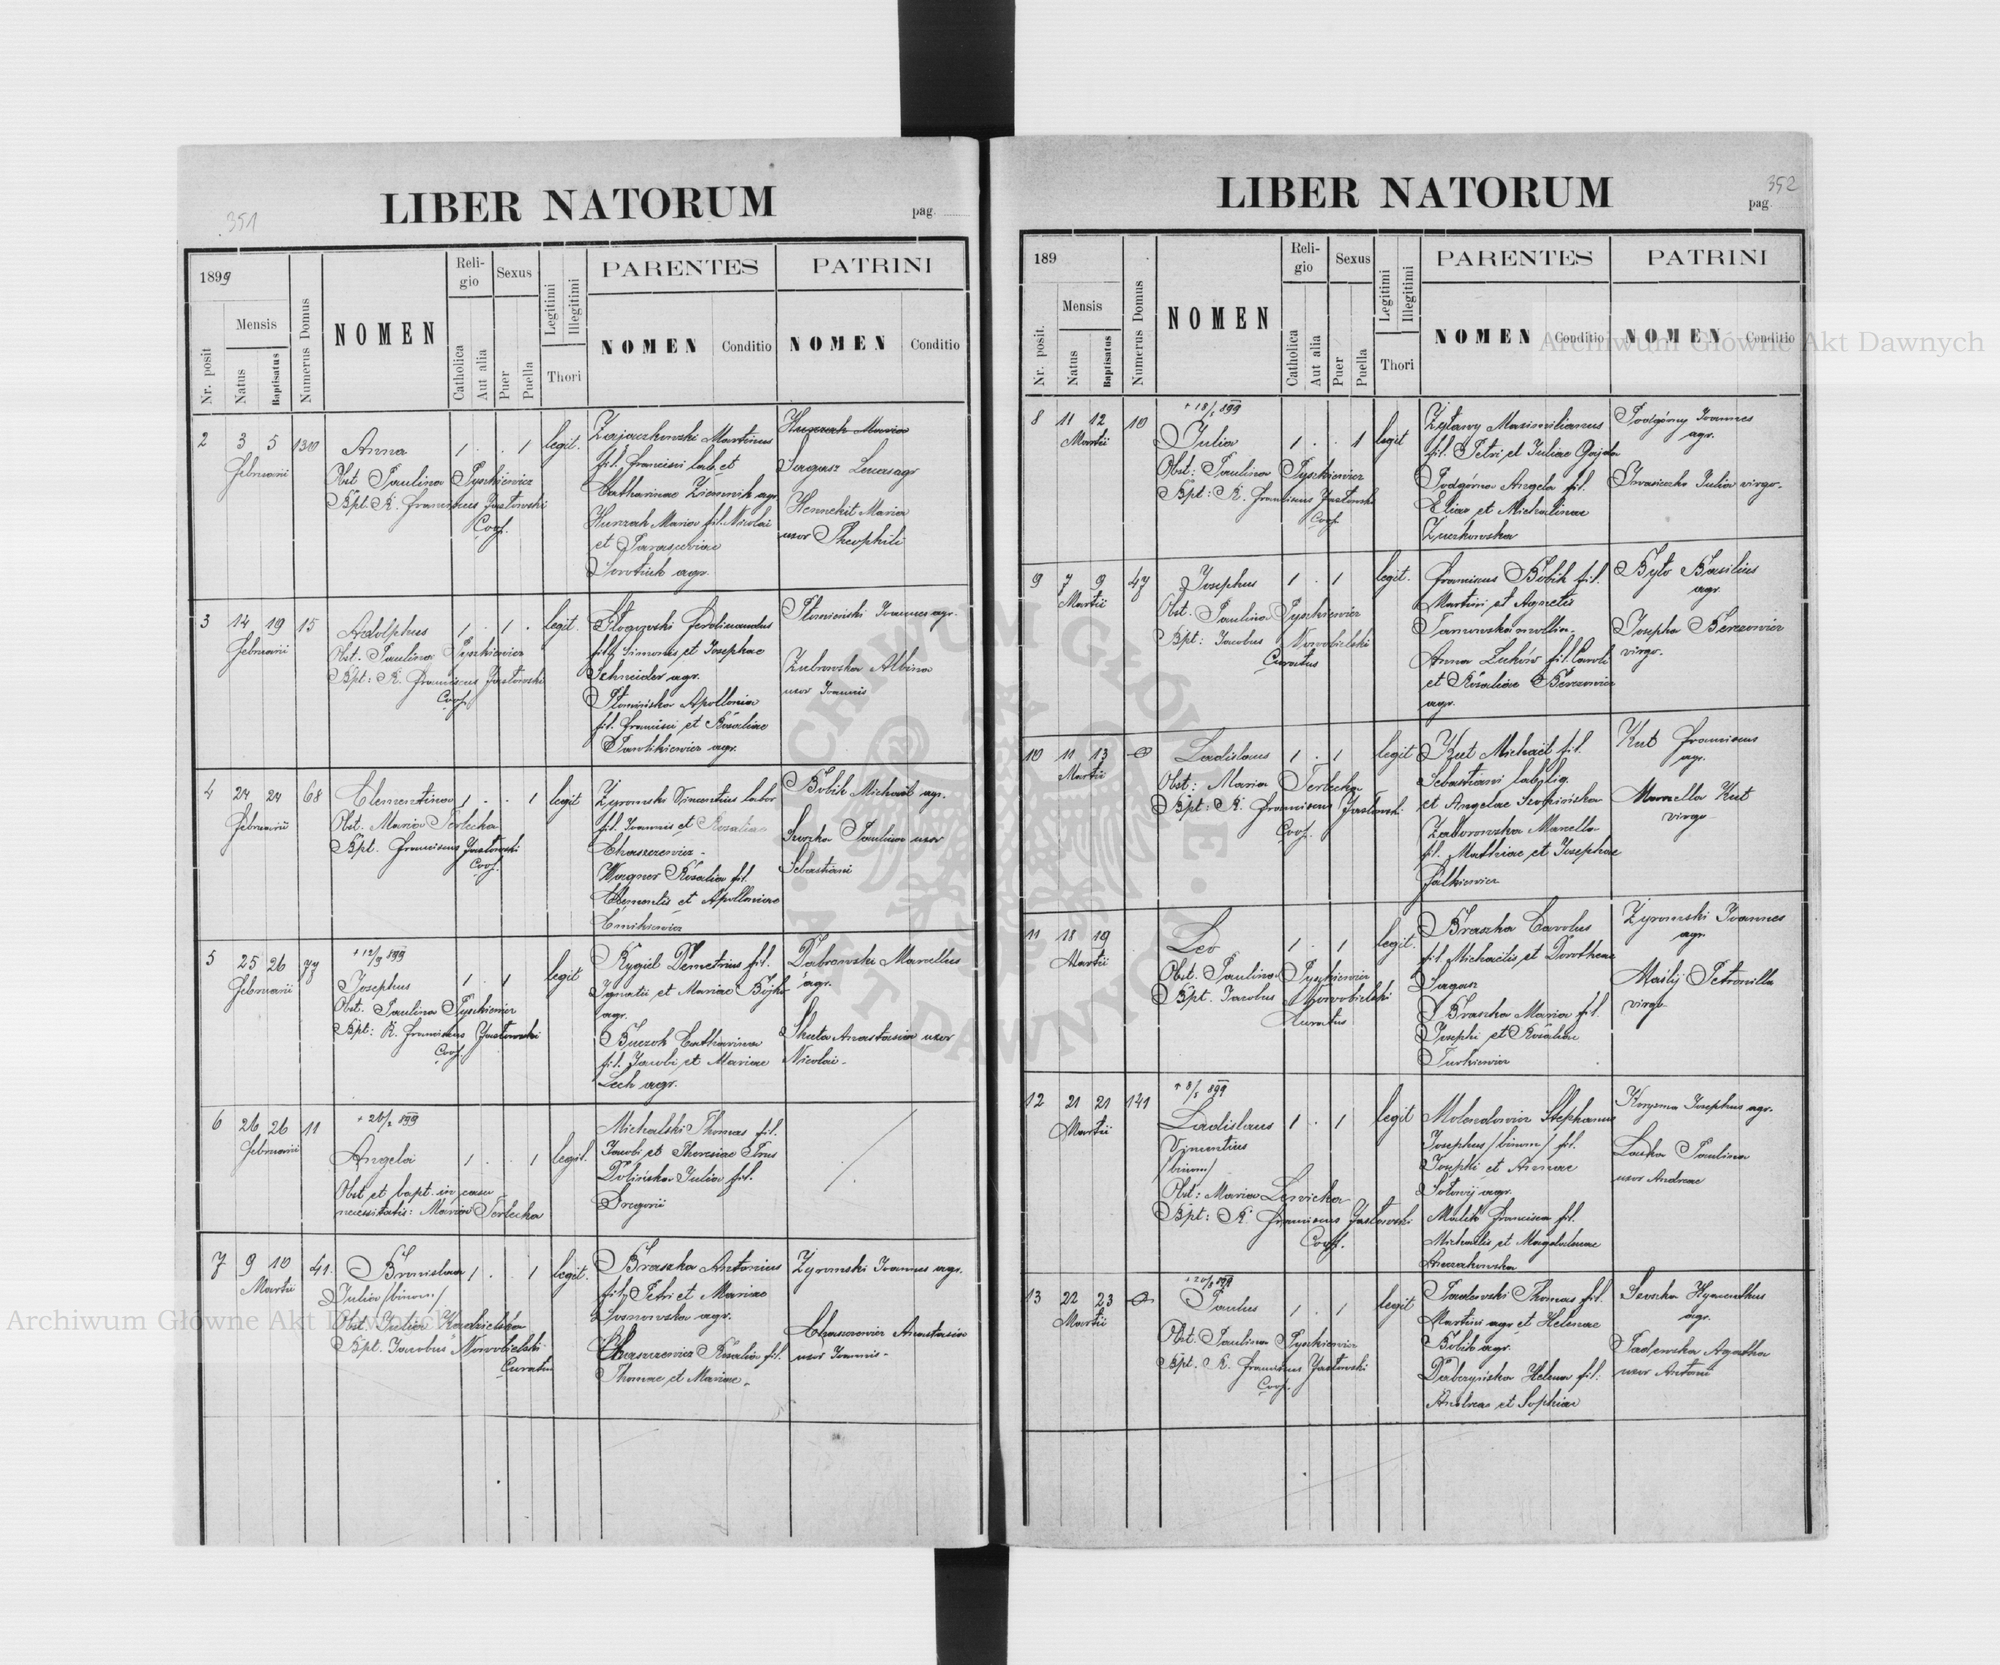 LIBER NATORUM
351
pag.
1899
Nr. posit
Mensis
Natus
Baptisatus
Numerus Domus
NOMEN
Religio
Catholica
Aut alia
Sexus
Puer
Puella
Legitimi
Illegitimi
Thori
PARENTES
NOMEN
Conditio
PATRINI
NOMEN
Conditio
2 3 5 130
Februarii
Anna
Obst Paulina Tyszkiewicz
Bpt. R. Franciscus Jastowski
Coop.
1 . . 1 legit.
Martinus
fil. Francisci lab. et
Catharinae Ziemnik agr.
Hunzah Maria fil. Nicolai
et Parasceviae
agr.
Maria
agr
Maria
uxor Theophili
3 14 19 15
Februarii
Adolphus
Obst. Paulina Tyszkiewicz
Bpt: R. Franciscus Jastowski
Coop.
1 . 1 . legit.
Ferdinandus
fil. Simonis et Josephae
Schneider agr.
Słomińska Apollonia
fil. Francisci et Rosaliae
Pawlikiewicz agr.
Słomiński Joannes agr.
Zubrowska Albina
uxor Joannis
4 24 24 68
Februarii
Clementina
Obst. Maria Terlecka
Bpt. Franciscus Jastowski
Coop.
1 . . 1 legit
Żyromski Vincentius labor
fil. Joannis et Rosalia
Chaszczewicz -
Wagner Rosalia fil.
Clementis et Apolloniae
Bobik Michael agr.
Paulina uxor
Sebastiani
5 25 26 77
Februarii
Josephus
Obst. Paulina Tyszkiewicz
Bpt: R. Franciscus Jastowski
Coop.
1 . 1 legit
Rygiel Demetrius fil.
Ignatii et Mariae Bojko
agr.
Catharina
fil. Jacobi et Mariae
Lech agr.
Dabrowski Marcellus
agr.
Skuta Anastasia uxor
Nicolai -
6 26 26 11
Februarii
Angela
Obst et bapt. in casu
necessitatis: Maria Terlecka
1 . . 1 legit.
Michalski Thomas fil.
Jacobi et Theresiae
Dolińska Julia fil.
Gregorii
7 9 10 41.
Martii
Bronislava
Julia /binom./
Obst. Julia Kadzielska
Bpt. Jacobus Nowobielski
Curatus
1 . . 1 legit.
Braszka Antonius
fil. Petri et Mariae
Sosnowska agr.
Chaszczewicz Rosalia fil.
Thomae et Mariae -
Żyromski Joannes agr.
Chaszczewicz Anastasia
uxor Joannis -
LIBER NATORUM
352
pag
189
Nr. posit.
Mensis
Natus
Baptisatus
Numerus Domus
NOMEN
Religio
Catholica
Aut alia
Sexus
Puer
Puella
Legitimi
Illegitimi
Thori
PARENTES
NOMEN
Conditio
PATRINI
NOMEN
Conditio
8 11 12 10
Martii
Julia
Obst: Paulina Tyszkiewicz
Bpt: R. Franciscus Jastowski
Coop.
1 . . 1 legit
Maximilianus
fil. Petri et Juliae Gajda
Podgórna Angela fil.
Eliae et Michalinae
Zuczkowska
Podgórny Joannes
agr.
Iwasieczko Julia virgo.
9 7 9 47
Martii
Josephus
Obst. Paulina Tyszkiewicz
Bpt: Jacobus Nowobielski
Curatus
1 . 1 legit.
Franciscus Bobik fil.
Martini et Agnetis
Tarnowska
Anna Luków fil. Caroli
et Rosaliae Berezowicz
agr.
Byto Basilius
agr.
Josepha Berezowicz
virgo.
10 11 13
Martii
Ladislaus
Obst: Maria Terlecka
Bpt: R. Franciscus Jastowski
Coop.
1 . 1 legit
Kut Michael fil.
Sebastiani
et Angelae
Zaborowska Marcella
fil. Mathiae et Josephae
Falkiewicz
Kut Franciscus
agr.
Marcella Kut
virgo
11 18 19
Martii
Leo
Obst. Paulina Tyszkiewicz
Bpt. Jacobus Nowobielski
Curatus
1 . 1 legit.
Braszka Carolus
fil. Michaelis et Dorotheae
Sagan
Braszka Maria fil.
Josephi et Rosaliae
Turkiewicz
Żyromski Joannes
agr.
Petronilla
virgo
12 21 21 141
Martii
Ladislaus
Vincentius
/binom/
Obst: Maria Lewicka
Bpt: R. Franciscus Jastowski
Coop.
1 . 1 legit
Stephanus
Josephus /binom/ fil.
Josephi et Annae
Sołowij agr.
Malik Francisca fil.
Michaelis et Magdalenae
Josephus agr.
Paulina
uxor Andreae
13 22 23
Martii
Paulus
Obst. Paulina Tyszkiewicz
Bpt. R. Franciscus Jastowski
Coop.
1 . 1 legit
Thomas fil.
Martini agr et Helenae
Bobik agr.
Helena fil.
Andreae et Sophiae
Hyacinthus
agr.
Agatha
uxor Antoni
Archiwum Główne Akt Dawnych
Archiwum Główne Akt Dawnych
ARCHIWUM GŁÓWNE AKT DAWNYCH